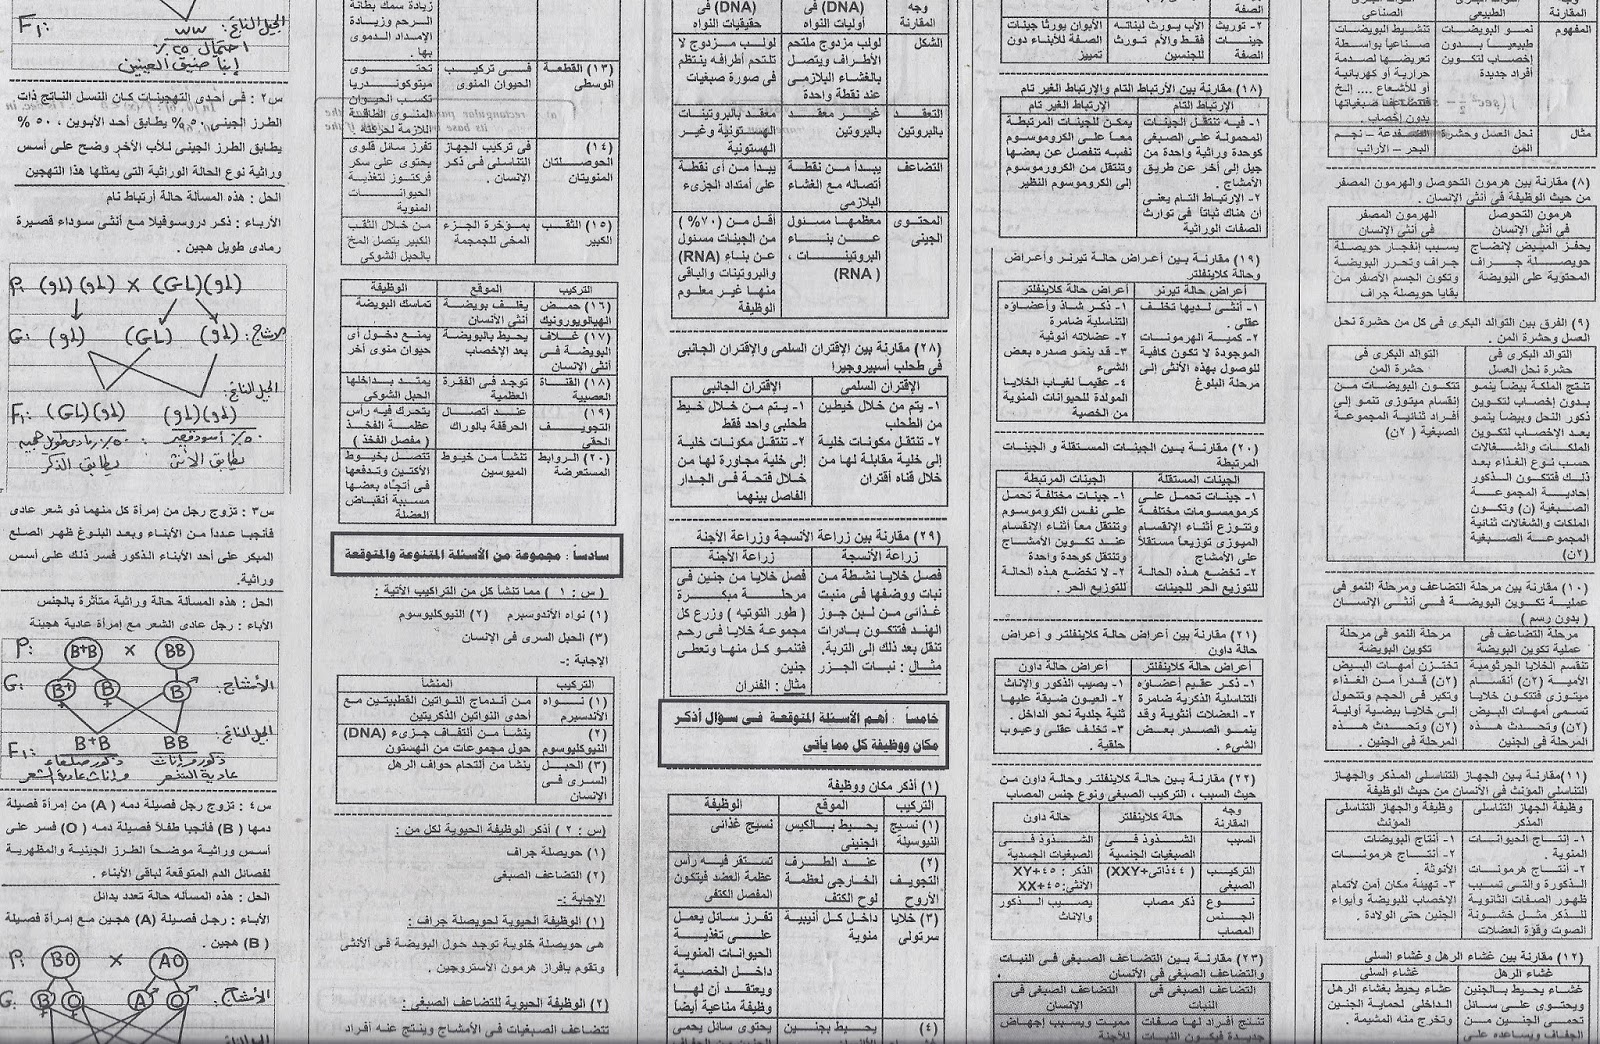 وجه المقارنة
الطبيعى
الصناعى
المفهوم
نمو البويضات
طبيعياً بدون
إخصاب لتكوين
أفراد جديدة
تنشيط البويضات
صناعياً بواسطة
تعريضها لصدمة
حرارية أو كهربائية
أو للأشعاع .... إلخ
بدون إخصاب .
مثال
نحل العسل وحشرة
المن
نجم
البحر – الأرانب
(٨) مقارنة بين هرمون التحوصل والهرمون المصفر
من حيث الوظيفة فى أنثى الإنسان .
هرمون التحوصل
فى أنثى الإنسان
الهرمون المصفر
فى أنثى الإنسان
يحفز المبيض لإنضاج
حويصلة جراف
المحتوية على البويضة
يسبب إنفجار حويصلة
جراف وتحرر البويضة
وتكون الجسم الأصفر من
بقايا حويصلة جراف
(٩) الفرق بين التوالد البكرى فى كل من حشرة نحل
العسل وحشرة المن .
التوالد البكرى فى
حشرة نحل العسل
التوالد البكرى فى
حشرة المن
تنتج الملكة بيضاً ينمو
بدون إخصاب لتكوين
ذكور النحل وبيضاً ينمو
بعد الإخصاب لتكوين
الملكات والشغالات
حسب نوع الغذاء بعد
ذلك فتتكون الذكور
إحادية المجموعة
الصبغية (ن) وتكون
الملكات والشغالات ثنائية
المجموعة الصبغية
(٢ن)
تتكون البويضات من
إنقسام ميتوزى تنمو إلى
أفراد ثنائية المجموعة
الصبغية ( ٢ن)
(١٠) مقارنة بين مرحلة التضاعف ومرحلة النمو فى
عملية تكوين البويضة فى أنثى الإنسان
( بدون رسم )
مرحلة التضاعف فى
عملية تكوين البويضة
مرحلة النمو فى مرحلة
تكوين البويضة
تنقسم الخلايا الجرثومية
الأمية (٢ن) أنقسام
ميتوزى فتتكون خلايا
تسمى أمهات البيض
(٢ن) وتحدث هذه
المرحلة فى الجنين
تختزن أمهات البيض
(٢ن) قدراً من الغذاء
وتكبر فى الحجم وتتحول
إلى خلايا بيضية أولية
(٢ن) وتحدث هذه
المرحلة فى الجنين .
(١١)مقارنة بين الجهاز التناسلى المذكر والجهاز
التناسلى المؤنث فى الأنسان من حيث الوظيفة
وظيفة الجهاز التناسلى
المذكر
وظيفة والجهاز التناسلى
المؤنث
١- إنتاج الحيوانات
المنوية .
٢- أنتاج هرمونات
الذكورة والتى تسبب
ظهور الصفات الثانوية
للذكر مثل خشونة
الصوت وقوة العضلات
١- أنتاج البويضات
٢- أنتاج هرمونات
الأنوثة
٣- تهيئة مكان أمن لأتمام
الإخصاب للبويضة وأيواء
الجنين حتى الولادة .
(١٢) مقارنة بين غشاء الرهل وغشاء السلى
غشاء الرهل
غشاء السلى
غشاء يحيط بالجنين
ويحتوى على سائل
تحمى الجنين من
الجفاف ويساعده على
غشاء يحيط بغشاء الرهل
الداخلى لحماية الجنين
وتخرج منه المشيمة .
الصفة
٢- توريث
جينات
الصفة
الأب يورث لبناته
فقط والأم تورث
للجنسين
الأبوان يورثا جينات
الصفة للأبناء دون
تمييز
(١٨) مقارنة بين الأرتباط التام والإرتباط الغير تام
الإرتباط التام
الإرتباط الغير تام
١- فيه تنتقل الجينات
المحمولة على الصبغى
كوحدة وراثية واحدة من
جيل إلى أخر عن طريق
الأمشاج .
٢- الإرتباط التام يعنى
أن هناك ثباتاً فى توارث
الصفات الوراثية
يمكن للجينات المرتبطة
معاً على الكروموسوم
نفسه تنفصل عن بعضها
وتنتقل من الكروموسوم
إلى الكروموسوم النظير
(١٩) مقارنة بين أعراض حالة تيرنر وأعراض
وحالة كلاينفلتر
أعراض حالة تيرنر
أعراض حالة كلاينفلتر
١- أنثى لديها تخلف
عقلى .
٢- كمية الهرمونات
الموجودة لا تكون كافية
للوصول بهذه الأنثى إلى
مرحلة البلوغ
١- ذكر شاذ وأعضاؤه
التناسلية ضامرة
٢- عضلاته أنوثية
٣- قد ينمو صدره بعض
الشىء
٤- عقيماً لغياب الخلايا
المولدة للحيوانات المنوية
من الخصية
(٢٠) مقارنة بين الجينات المستقلة و الجينات
المرتبطة
الجينات المستقلة
الجينات المرتبطة
١- جينات تحمل على
كرموسومات مختلفة
وتتوزع أثناء الإنقسام
الميوزى توزيعاً مستقلاً
على الأمشاج
٢- تخضع هذه الحالة
للتوزيع الحر للجينات
١- جينات مختلفة تحمل
على نفس الكروموسوم
وتنتقل معاً أثناء الإنقسام
عند تكوين الأمشاج
وتنتقل كوحدة واحدة
٢- لا تخضع هذه الحالة
للتوزيع الحر .
(٢١) مقارنة بين أعراض حالة كلاينفلتر و أعراض
حالة داون
أعراض حالة كلاينفلتر
أعراض حالة داون
١- ذكر عقيم أعضاؤه
التناسلية الذكرية ضامرة
٢- العضلات أنثوية وقد
ينمو الصدر بعض
الشىء .
١- يصيب الذكور والإناث
٢- العيون ضيقة عليها
ثنية جلدية نحو الداخل .
٣- تخلف عقلى وعيوب
خلقية .
(٢٢) مقارنة بين حالة كلاينفلتر وحالة داون من
حيث السبب ، التركيب الصبغى ونوع جنس المصاب
وجه المقارنة
حالة كلاينفلتر
حالة داون
السبب
الشذوذ فى
الصبغيات الجنسية
الشذوذ فى
الصبغيات الجسدية
التركيب الصبغى
(٤٤ذاتى+XXY)
الذكر : ٤٥+XY
الأنثى:٤٥+XX
نوع الجنس المصاب
ذكر مصاب
يصيب الذكور
والإناث
(٢٣) مقارنة بين التضاعف الصبغى فى النبات
والتضاعف الصبغى فى الأنسان .
التضاعف الصبغى فى
النبات
التضاعف الصبغى فى
الإنسان
تنتج أفراد لها صفات
جديدة فيكون النبات
مميت ويسبب إجهاض
للأجنة
وجه المقارنة
(DNA) فى
أوليات النواه
(DNA) فى
حقيقيات النواه
الشكل
لولب مزدوج ملتحم
الأطراف ويتصل
بالغشاء البلازمى
عند نقطة واحدة
لولب مزدوج لا
تلتحم أطرافه ينتظم
فى صورة صبغيات
التعقد بالبروتين
غير معقد
بالبروتين
معقد بالبروتينات
الهستونية وغير
الهستونية
التضاعف
يبدأ من نقطة
أتصاله مع الغشاء
البلازمى
يبدأ من أى نقطة
على أمتداد الجزىء
المحتوى الجينى
معظمها مسئول
عن بناء
البروتينات ،
( RNA)
أقل من (٧٠% )
من الجينات مسئول
عن بناء (RNA)
والبروتينات والباقى
منها غير معلوم
الوظيفة
(٢٨) مقارنة بين الإقتران السلمى والإقتران الجانبى
فى طحلب أسبيروجيرا
الإقتران السلمى
الإقتران الجانبى
١- يتم من خلال خيطين
من الطحلب
٢- تنتقل مكونات خلية
إلى خلية مقابلة لها من
خلال قناه أقتران
١- يتم من خلال خيط
طحلبى واحد فقط
٢- تنتقل مكونات خلية
إلى خلية مجاورة لها من
خلال فتحة فى الجدار
الفاصل بينهما
(٢٩) مقارنة بين زراعة الأنسجة وزراعة الأجنة
زراعة الأنسجة
زراعة الأجنة
فصل خلايا نشطة من
نبات ووضعها فى منبت
غذائى من لبن جوز
الهند فتتكون بادرات
تنقل بعد ذلك إلى التربة.
مثال : نبات الجزر
فصل خلايا من جنين فى
مرحلة مبكرة
( طور التوتيه ) وزرع كل
مجموعة خلايا فى رحم
فتنمو كل منها وتعطى
جنين
مثال : الفئران
خامساً : أهم الأسئلة المتوقعة فى سؤال أذكر
مكان ووظيفة كل مما يأتى
(١) أذكر مكان ووظيفة
التركيب
الموقع
الوظيفة
(١) نسيج
النيوسيلة
يحيط بالكيس
الجنينى
نسيج غذائى
(٢)
التجويف
الأروح
عند الطرف
الخارجى لعظمة
لوح الكتف
تستقر فيه رأس
عظمة العضد فيتكون
المفصل الكتفى
(٣) خلايا
سرتولى
داخل كل أنيبية
منوية
تفرز سائل يعمل
على تغذية
الحيوانات المنوية
داخل الخصية
ويعتقد أن لها
وظيفة مناعية أيضاً
(٤)
يحيط بجنين
يحتوى سائل يحمى
زيادة سمك بطانة
الرحم وزيادة
الإمداد الدموى
بها .
(١٣) القطعة
الوسطى
فى تركيب
الحيوان المنوى
تحتوى
ميتوكوندريا
تكسب الحيوان
المنوى الطاقة
اللازمة لحركته
(١٤)
الحوصلتان
المنويتان
فى تركيب الجهاز
التناسلى فى ذكر
الإنسان .
تفرز سائل قلوى
يحتوى على سكر
فركتوز لتغذية
الحيوانات
المنوية
(١٥) الثقب
الكبير
بمؤخرة الجزء
المخى للجمجمة
من خلال الثقب
الكبير يتصل المخ
بالحبل الشوكى
التركيب
الموقع
الوظيفة
(١٦) حمض
الهيالويورونيك
يغلف بويضة
أنثى الأنسان
تماسك البويضة
(١٧) غلاف
البويضة فى
أنثى الإنسان
يحيط بالبويضة
بعد الإخصاب
يمنع دخول أى
حيوان منوى أخر
(١٨) القناة
العصبية
توجد فى الفقرة
العظمية
يمتد بداخلها
الحبل الشوكى
(١٩)
التجويف
الحقى
عند أتصال
الحرقفة بالوراك
يتحرك فيه رأس
عظمة الفخذ
( مفصل الفخذ )
(٢٠) الروابط
المستعرضة
تنشأ من خيوط
الميوسين
تتصل بخيوط
الأكتين وتدفعها
فى أتجاه بعضها
مسببة أنقباض
العضلة
سادساً : مجموعة من الأسئلة المتنوعة والمتوقعة
( س : ١ ) مما تنشأ كل من التراكيب الأتية :
(١) نواه الأندوسبرم (٢) النيوكليوسوم
(٣) الحبل السرى فى الإنسان
الإجابة :-
التركيب
المنشأ
(١) نواه
الأندسبرم
من أندماج النواتين القطبيتين مع
أحدى النواتين الذكريتين
(٢)
النيوكليوسوم
ينشأ من ألتفاف جزىء (DNA)
حول مجموعات من الهستون
(٣) الحبل
السرى فى
الإنسان
ينشأ من ألتحام حواف الرهل
(س : ٢ ) أذكر الوظيفة الحيوية لكل من :
(١) حويصلة جراف
(٢) التضاعف الصبغى
الاجابة :-
(١) الوظيفة الحيوية لحويصلة جراف :
هى حويصلة خلوية توجد حول البويضة فى ألأنثى
وتقوم بافراز هرمون الأستروجين .
(٢) الوظيفة الحيوية للتضاعف الصبغى :
تتضاعف الصبغيات فى الأمشاج وينتج عنه أفراد
الجيل الناتج: F1:
ww
احتمال ٢٥ ٪
إبنا ضيق العينين
س٢ : فى أحدى التهجينات كان النسل الناتج ذات
الطرز الجينى ٥٠ % يطابق أحد الأبوين ، ٥٠ %
يطابق الطرز الجينى للأب الأخر وضح على أسس
وراثية نوع الحالة الوراثية التى يمثلها هذا التهجين
الحل : هذه المسألة حالة أرتباط تام
الأرباء : ذكر دروسوفيلا مع أنثى سوداء قصيرة
رمادى طويل هجين .
P: (gl)(gl) X (GL)(gl)
G: (gl) (GL) (gl) الأمشاج:
الجيل الناتج:
F1: (GL)(gl) (gl)(gl)
٥٠٪ رمادى طويل هجين ٥٠٪ أسود قصير
يطابق الذكر يطابق الأنثى
س٣ : تزوج رجل من إمرأة كل منهما ذو شعر عادى
فأنجبا عدداً من الأبناء وبعد البلوغ ظهر الصلع
المبكر على أحد الأبناء الذكور فسر ذلك على أسس
وراثية.
الحل : هذه المسألة حالة وراثية متأثرة بالجنس
الأباء : رجل عادى الشعر مع إمرأة عادية هجينة
P: B+B X BB
G: B+ B B الأمشاج:
الجيل الناتج:
F1: B+B BB
ذكور صلعاء ذكور وإناث
وإناث عادية الشعر عادية الشعر
س٤ : تزوج رجل فصيلة دمه ( A) من إمرأة فصيلة
دمها ( B) فأنجبا طفلاً فصيلة دمه ( O) فسر على
أسس وراثية موضحاً الطرز الجينية والمظهرية
لفصائل الدم المتوقعة لباقى الأبناء .
الحل : هذه المسأله حالة تعدد بدائل
الأباء : رجل فصيلة (A) هجين مع إمرأة فصيلة
( B) هجين .
P: BO X AO
G: B O A O الأمشاج: